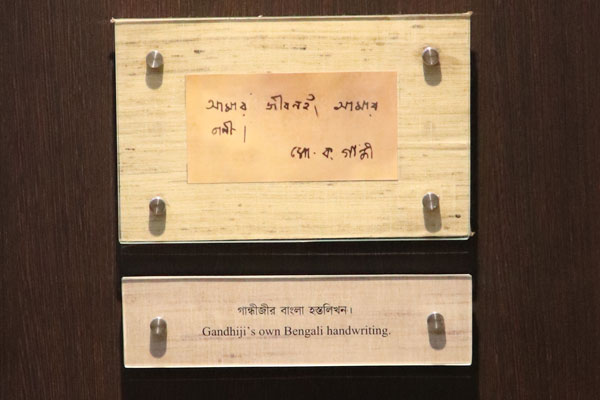 আমার জীবনই আমার
বাণী।
মো. ক. গান্ধী
গান্ধীজীর বাংলা হস্তলিখন।
Gandhiji's own Bengali handwriting.